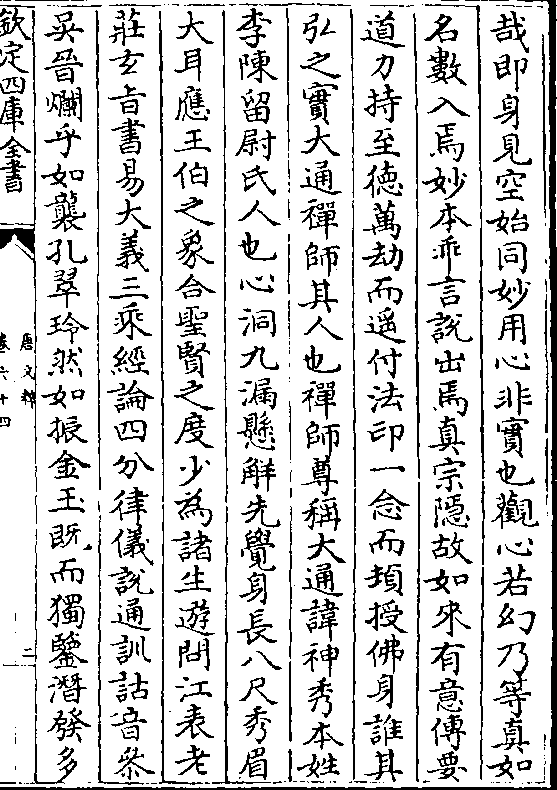 哉即身見空始同妙用心非實也觀心若幻乃等真如
名數入焉妙本乖言說出焉真宗隱故如來有意傳要
道力持至德萬劫而遥付法印一念而頓授佛身誰其
弘之實大通禪師其人也禪師尊稱大通諱神秀本姓
李陳留尉氏人也心洞九漏懸解先覺身長八尺秀眉
大耳應王伯之象合聖賢之度少為諸生遊問江表老
莊玄旨書易大義三乘經論四分律儀說通訓詁音參
吳晉爛乎如襲孔翠玲然如振金玉既而獨鑒潛發多
欽定四庫全書
唐文粹
卷六十四
二